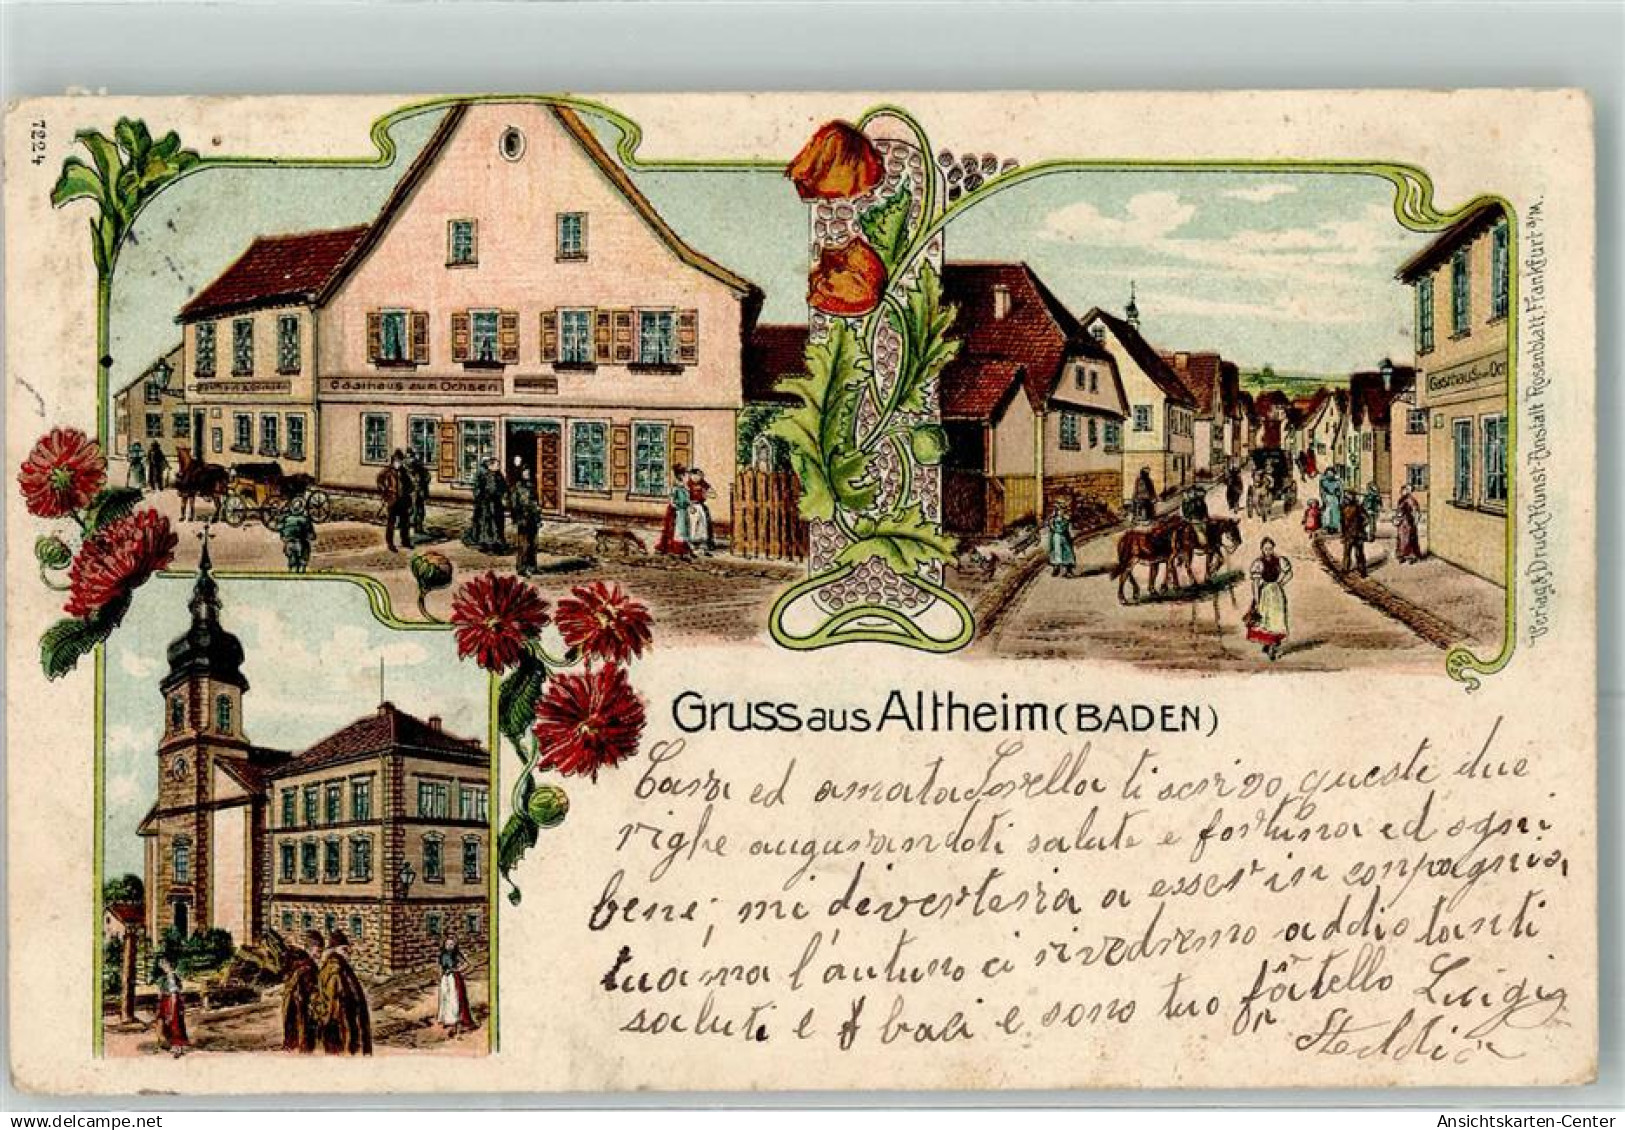 7224
Gasthaus zum Ochsen
Gasthaus zum Och
Verlag & Druck Kunst-Anstalt Rosenblatt, Frankfurt a/M.
Gruss aus Altheim (BADEN)
Cara ed amata Sorella ti scrivo queste due
righe augurandoti salute e fortuna ed ogni
bene; mi divertera a esser in conpagnia
tua ma l'autuno ci rivedremo addio tanti
saluti e baci e sono tuo fratello Luigi
Ansichtskarten-Center